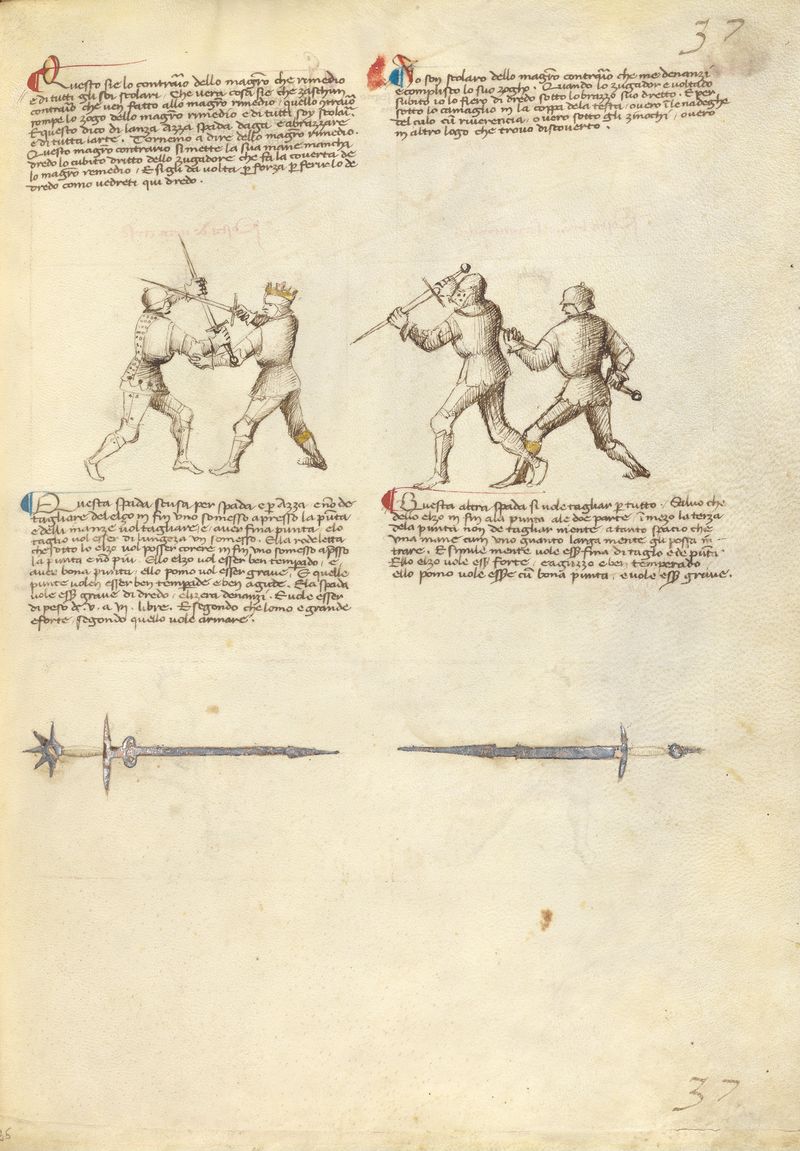 37
Questo sie lo contrario dello magro che remedio
e di tutti gli soi scolari. Che vera cosa sie che zaschun
contrario che ven fatto allo magro rimedio quello
rompe lo zogo dello magro rimedio e di tutti soy scolari.
E questo dico di lanza azza spada daga e abrazzare
e di tutta larte. Tornemo a dire dello magro rimedio.
Questo magro contrario si mette la sua mane mancha
dredo lo cubito dritto dello zugadore che fa la coverta de
lo magro remedio. E si gli da volta per forza per ferirlo de
dredo como vedreti qui dredo.
Io son scolaro dello magro contrario che me denanzi
e complisco lo suo zogho. Quando lo zugador e voltado
subito io lo fiero di dredo sotto lo brazzo suo dretto. E per
sotto lo camaglio in la coppa dela testa, overo in le nadeghe
del culo cum riverencia, overo sotto gli zinochi, overo
in altro logo che trovo discoverto.
Questa spada scusa per spada e per azza e no de
tagliare del elzo in fin uno somesso apresso la punta
e delli manze vol tagliare e aver fina punta. Elo
taglio vol esser di lungeza un somesso. Ella rodeletta
che sotto lo elzo vol posser corere in fin uno somesso apresso
la punta e no piu. Ello elzo vol esser ben temprado, e
aver bona punta, ello pomo vol esser grave, E quelle
punte volen esser ben temprade e ben agude. Ela spada
vole esser grave di dredo, e lizera denanzi. E vole esser
di peso de .V. a VI. libre. E segondo che lomo e grande
e forte, segondo quello vole armare.
Questa altra spada si vole tagliar per tutto. Salvo che
dello elzo in fin ala punta ale doe parte, i mezo la terza
dela punta non de tagliar mente, a tanto spacio che
una mane cum uno guanto larga mente gli possa in-
trare. E simile mente vole esser fina di taglo e de punta.
Ello elzo vole esser forte, e agizzo e ben temperado
ello pomo vole esser cum bona punta, e vole esser grave.
37